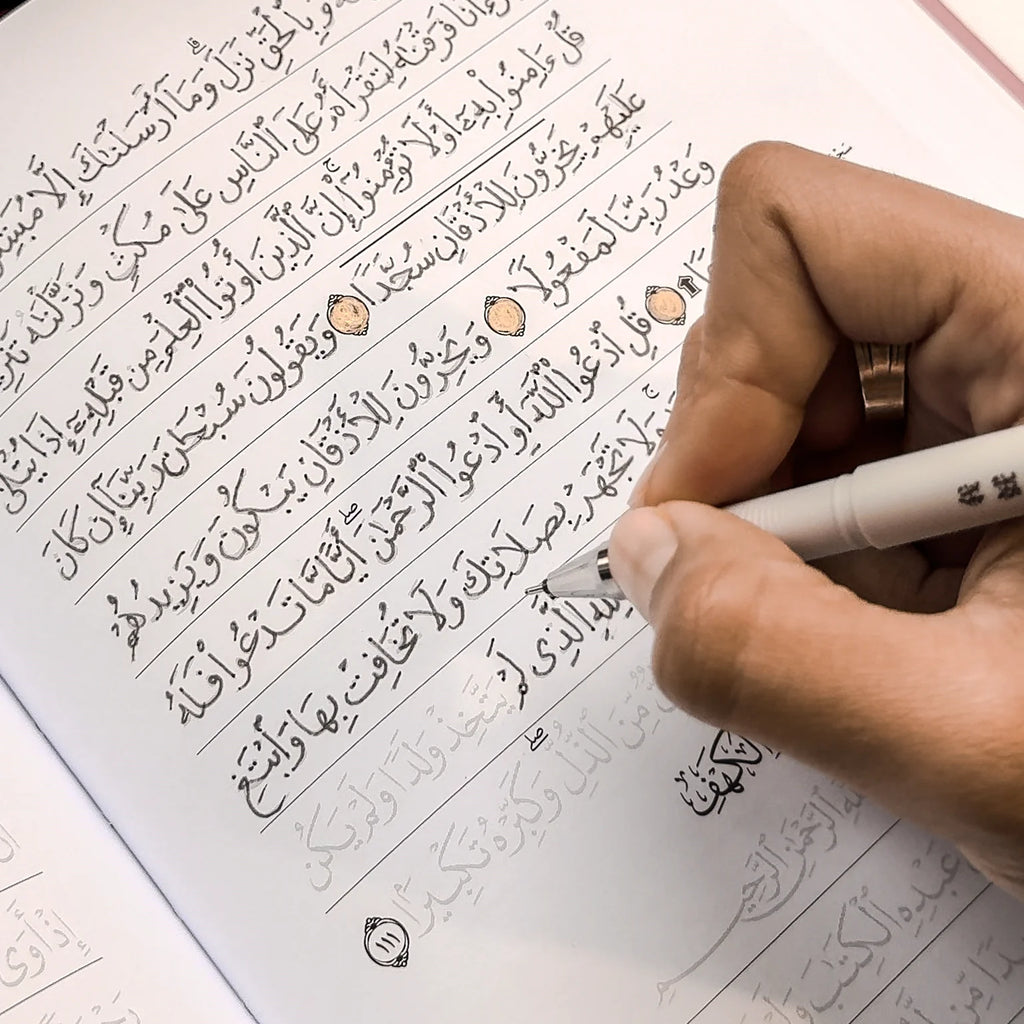 وَبِالْحَقِّ نَزَلَ ۗ وَمَا أَرْسَلْنَاكَ إِلَّا
فَرَقْنَاهُ لِتَقْرَأَهُ عَلَى النَّاسِ عَلَىٰ مُكْثٍ وَنَزَّلْنَاهُ
قُلْ ءَامِنُوا بِهِ أَوْ لَا تُؤْمِنُوا ۚ إِنَّ الَّذِينَ أُوتُوا الْعِلْمَ مِن قَبْلِهِ إِذَا يُتْلَىٰ
عَلَيْهِمْ يَخِرُّونَ لِلْأَذْقَانِ سُجَّدًا وَيَقُولُونَ سُبْحَانَ رَبِّنَا إِن كَانَ
وَعْدُ رَبِّنَا لَمَفْعُولًا وَيَخِرُّونَ لِلْأَذْقَانِ يَبْكُونَ وَيَزِيدُهُمْ
قُلِ ادْعُوا اللَّهَ أَوِ ادْعُوا الرَّحْمَٰنَ ۖ أَيًّا مَّا تَدْعُوا فَلَهُ
وَلَا تَجْهَرْ بِصَلَاتِكَ وَلَا تُخَافِتْ بِهَا وَابْتَغِ
الَّذِي لَمْ يَتَّخِذْ وَلَدًا وَلَمْ يَكُن
مِّنَ الذُّلِّ ۖ وَكَبِّرْهُ تَكْبِيرًا ١١١
الْكَهْفِ
الرَّحْمَٰنِ الرَّحِيمِ
عَبْدِهِ الْكِتَابَ وَلَمْ
إِذْ أَوَى